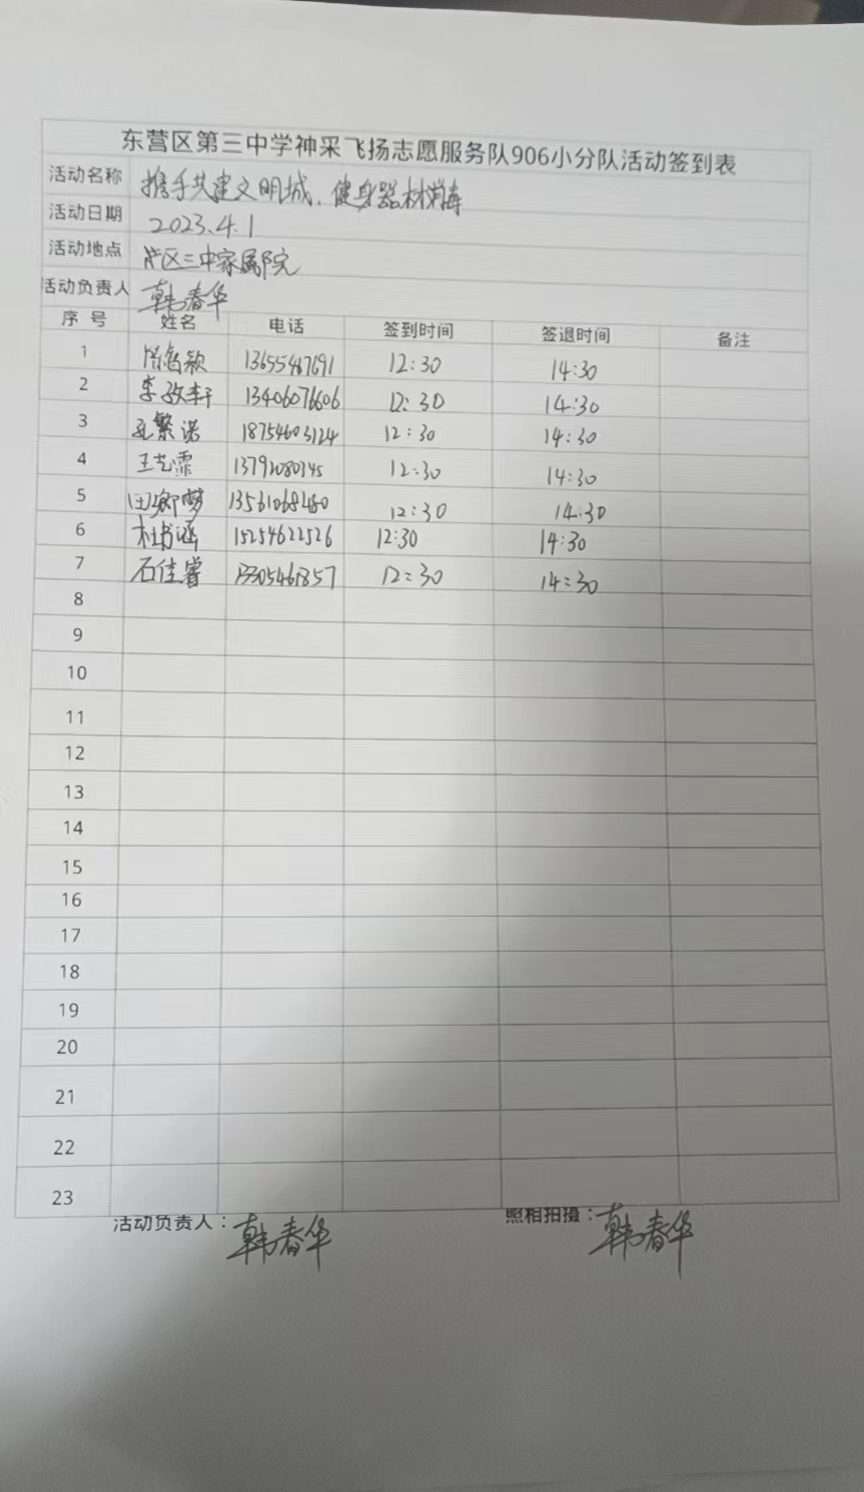 东营区第三中学神采飞扬志愿服务队906小分队活动签到表
活动名称 携手共建文明城、健身器材消毒
活动日期 2023.4.1
活动地点 区三中家属院
活动负责人 韩春华
序 号 姓名 电话 签到时间 签退时间 备注
1 13655467691 12:30 14:30
2 李孜轩 13406076606 12:30 14:30
3 孔繁诺 18754603124 12:30 14:30
4 王艺霏 12:30 14:30
5 田 梦 12:30 14:30
6 杜书涵 15254622526 12:30 14:30
7 石佳睿 13305461857 12:30 14:30
8
9
10
11
12
13
14
15
16
17
18
19
20
21
22
23
活动负责人：韩春华 照相拍摄：韩春华